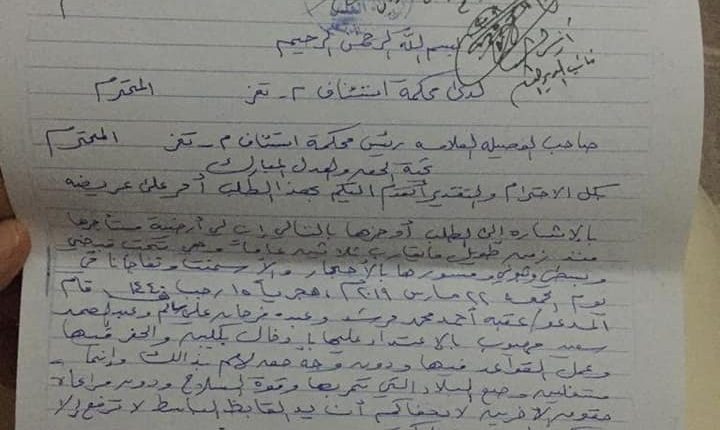 بسم الله الرحمن الرحيم
لدى محكمة استئناف م - تعز المحترم
صاحب الفضيلة العلامه رئيس محكمة استئناف م - تعز المحترم
تحية الحق والعدل المبارك
بكل الاحترام والتقدير أتقدم اليكم بهذا الطلب
بالإشارة إلى الطلب أوجزها بالتالي ان لي أرضية مستأجرها
منذ زمن طويل ما يقارب ثلاثين عاماً وهي تحت قبضتي
وبسطي ومسورها بالأحجار والإسمنت وتفاجأنا في
يوم الجمعة ٢٢ مارس ٢٠١٩م هجرية ١٥ رجب ١٤٤٠ قام
المدعو / عقبه أحمد محمد مرشد وعبده فرحان علي سالم وعبدالصمد
سعيد مهيوب بالاعتداء عليها بكليه والحفر فيها
وعمل القواعد فيها ودون وجه حق لهم بذالك وإنما
مستغلين وضع البلاد التي تمر بها وقوة السلاح ودون مراعاة
حقوق الآخرين لا يخفاكم أن يد القابض الباسط لا ترفع إلا